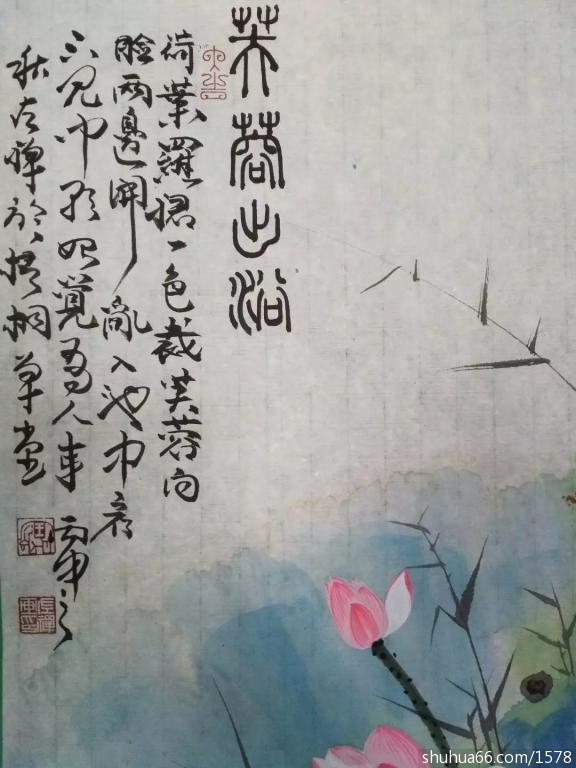 芙蓉出浴
荷葉羅裙一色裁芙蓉向
臉兩邊開亂入池中看
不見聞歌始覺有人來 丙申之
秋左於梧桐草堂
shuhua66.com/1578